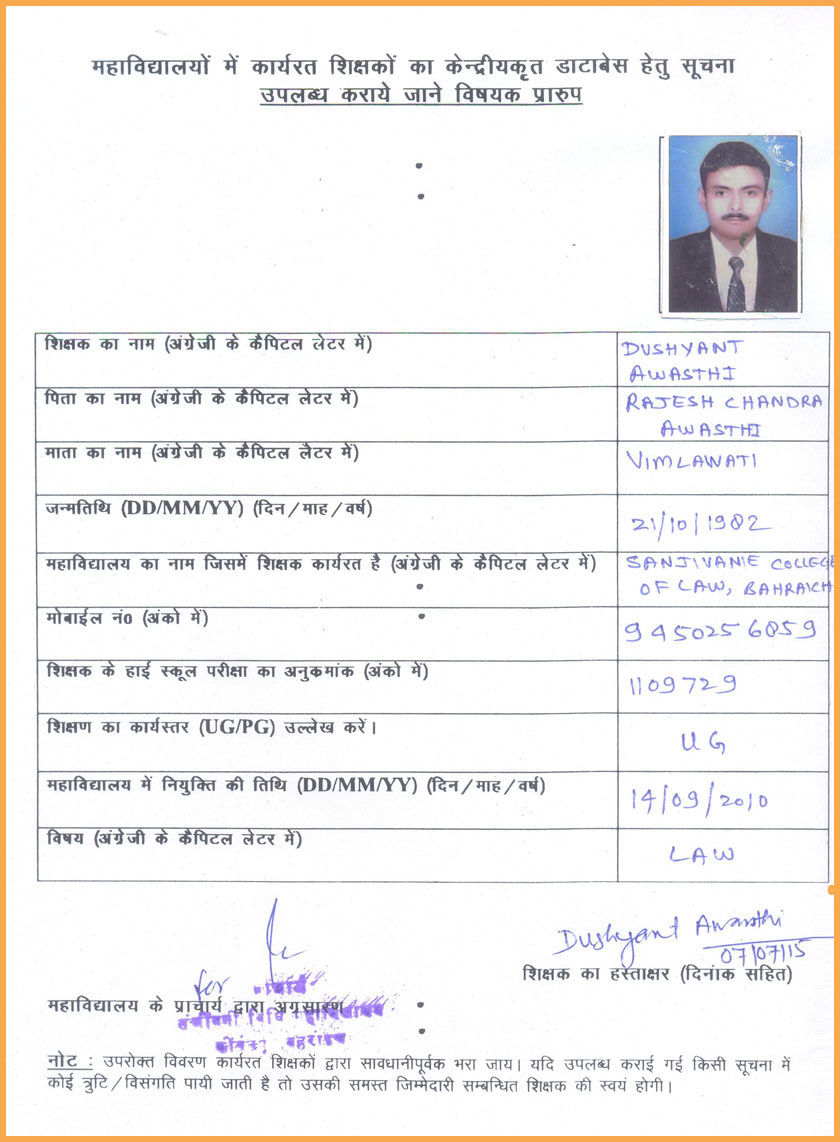 महाविद्यालयों में कार्यरत शिक्षकों का केन्द्रीयकृत डाटाबेस हेतु सूचना
उपलब्ध कराये जाने विषयक प्रारुप
शिक्षक का नाम (अंग्रेजी के कैपिटल लेटर में)
DUSHYANT
AWASTHI
पिता का नाम (अंग्रेजी के कैपिटल लेटर में)
RAJESH CHANDRA
AWASTHI
माता का नाम (अंग्रेजी के कैपिटल लैटर में)
VIMLAWATI
जन्मतिथि (DD/MM/YY) (दिन/माह/वर्ष)
21/10/1982
महाविद्यालय का नाम जिसमें शिक्षक कार्यरत है (अंग्रेजी के कैपिटल लेटर में)
SANJIVANIE COLLEGE
OF LAW, BAHRAICH
मोबाईल नं0 (अंको में)
9450256059
शिक्षक के हाई स्कूल परीक्षा का अनुकमांक (अंको में)
1109729
शिक्षण का कार्यस्तर (UG/PG) उल्लेख करें।
UG
महाविद्यालय में नियुक्ति की तिथि (DD/MM/YY) (दिन/माह/वर्ष)
14/09/2010
विषय (अंग्रेजी के कैपिटल लेटर में)
LAW
Dushyant Awasthi
07/07/15
शिक्षक का हस्ताक्षर (दिनांक सहित)
for
महाविद्यालय के प्राचार्य द्वारा अग्रसारण
नोट : उपरोक्त विवरण कार्यरत शिक्षकों द्वारा सावधानीपूर्वक भरा जाय। यदि उपलब्ध कराई गई किसी सूचना में
कोई त्रुटि/विसंगति पायी जाती है तो उसकी समस्त जिम्मेदारी सम्बन्धित शिक्षक की स्वयं होगी।